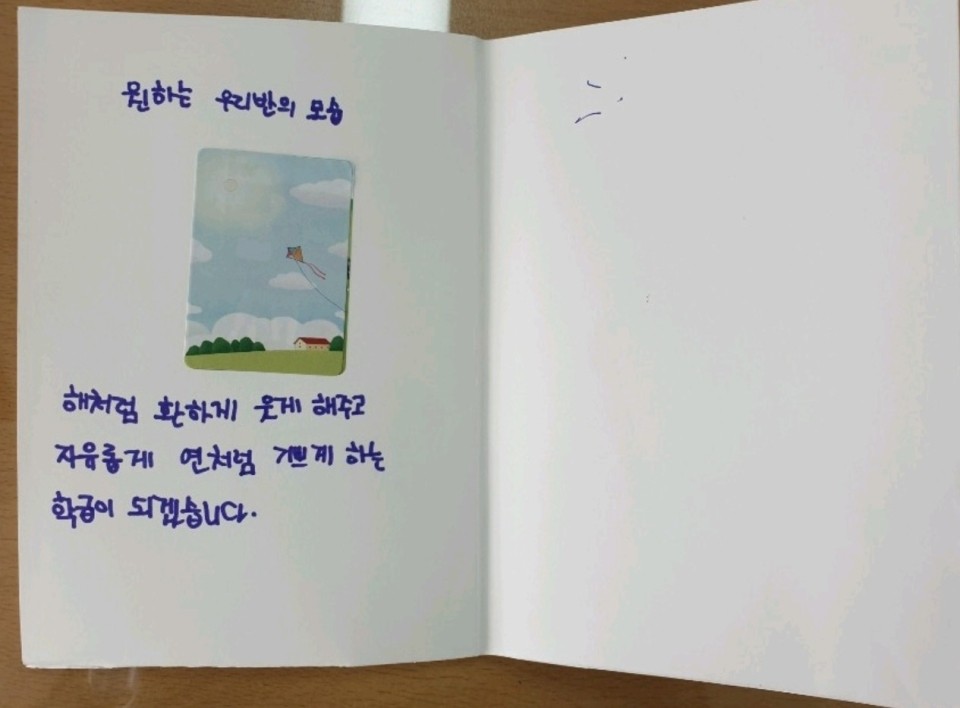 원하는 우리반의 모습
해처럼 환하게 웃게 해주고
자유롭게 연처럼 기쁘게 하는
학급이 되겠습니다.